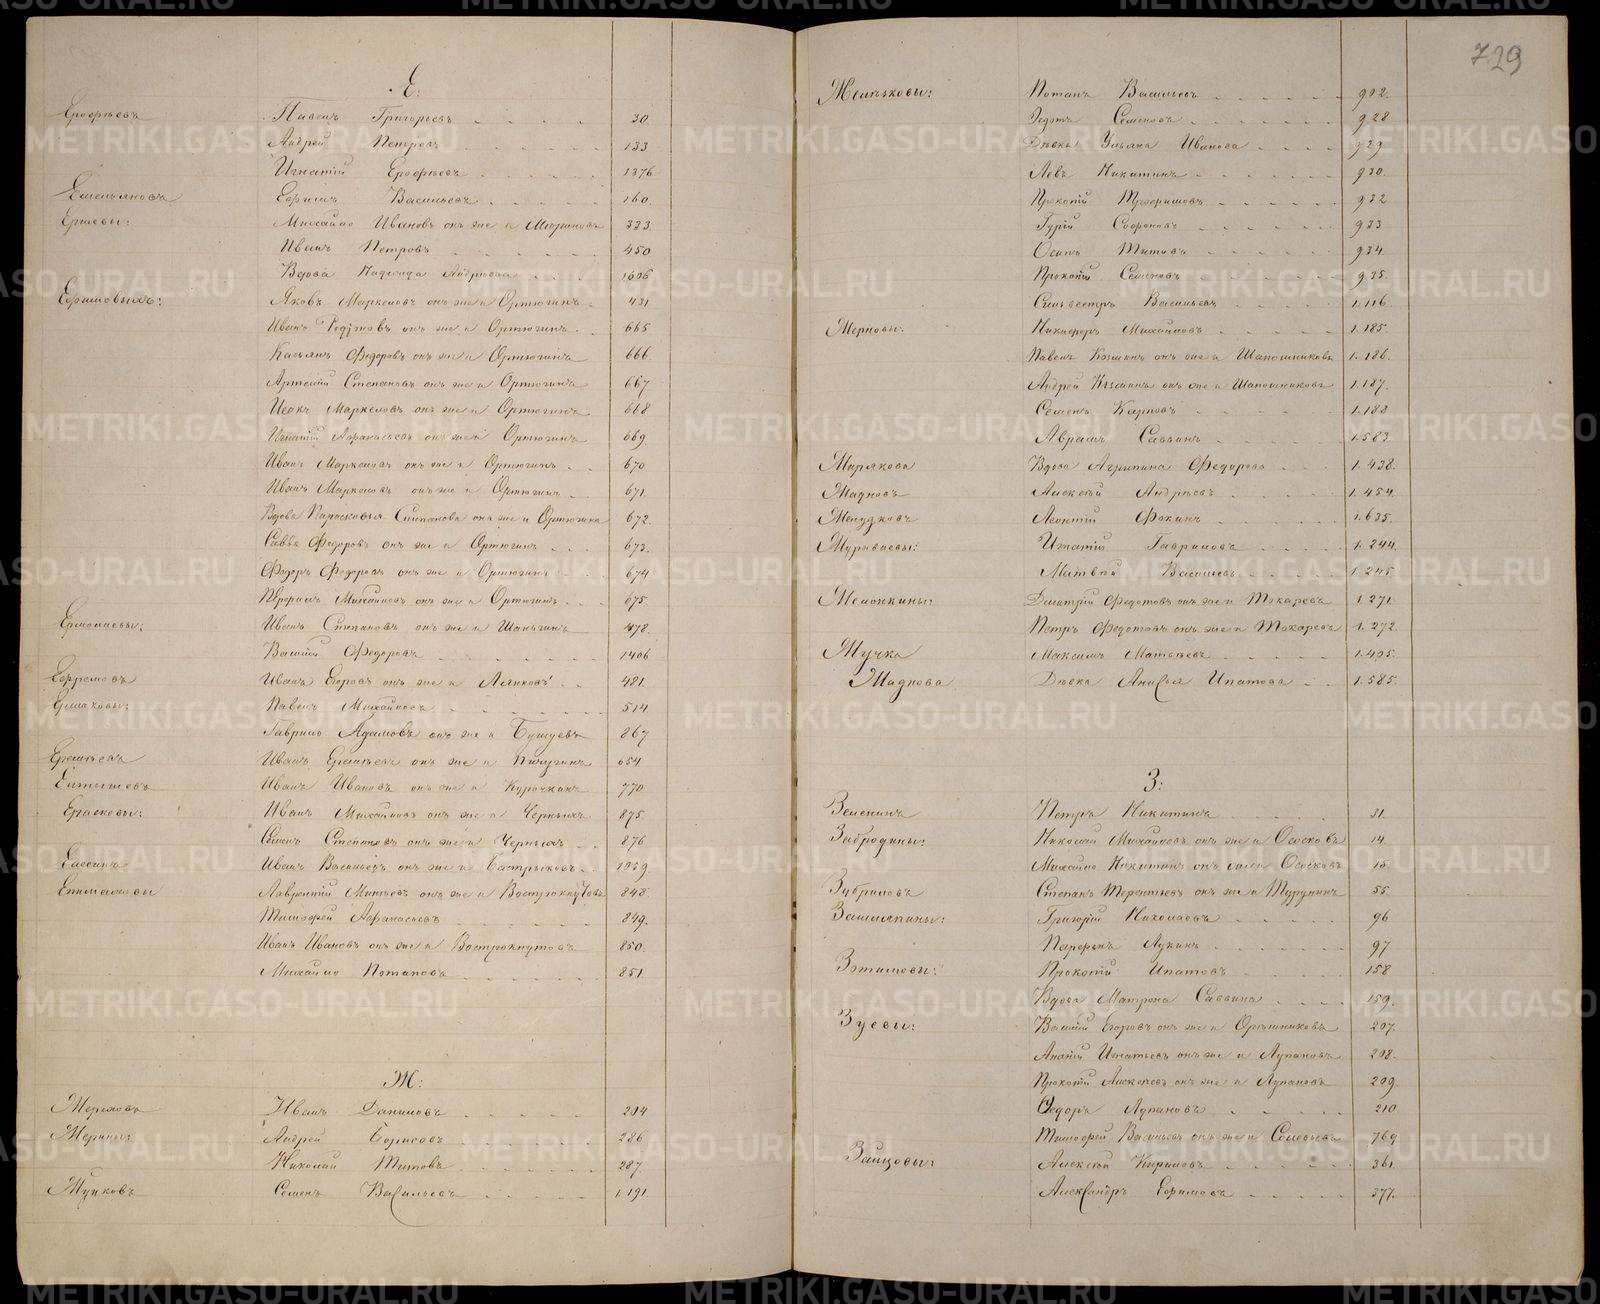 729
Е:
Ерофѣевъ Павелъ Григорьевъ 30
Андрей Петровъ 133
Игнатій Ерофѣевъ 1376
Емельяновъ Ефимъ Васильевъ 160.
Ершевы: Михайло Ивановъ онъ же и 333.
Иванъ Петровъ 450
Вдова Надежда Андреева 1606
Ефимовыхъ: Яковъ Маркеловъ онъ же и Ортюгинъ 431
Иванъ Родіоновъ онъ же и Ортюгинъ 665
Касьянъ Федоровъ онъ же и Ортюгинъ 666
Артемій Степановъ онъ же и Ортюгинъ 667
Исакъ Маркеловъ онъ же и Ортюгинъ 668
Игнатій Афанасьевъ онъ же и Ортюгинъ 669
Иванъ Маркеловъ онъ же и Ортюгинъ 670
Иванъ Маркеловъ онъ же и Ортюгинъ 671
Вдова Парасковья Степанова она же и Ортюгина 672
Савва Федоровъ онъ же и Ортюгинъ 673.
Федоръ Федоровъ онъ же и Ортюгинъ 674
Михайловъ онъ же и Ортюгинъ 675.
Ермолаевы: Иванъ Степановъ онъ же и Шаньгинъ 478.
Василій Федоровъ 1406
Ефремовъ Иванъ Егоровъ онъ же и Ляпковъ 481.
Ермаковы: Павелъ Михайловъ 514
Гаврило Адамовъ онъ же и Бушуевъ 867
Еремѣевъ Иванъ Еремѣевъ онъ же и Пичугинъ 654
Иванъ Ивановъ онъ же и Курочкинъ 770
Ерасковы: Иванъ Михайловъ онъ же и Черныхъ 875.
Семенъ Степановъ онъ же и Черныхъ 876
Иванъ Васильевъ онъ же и Бастрыковъ 1059
Епимаховы Лаврентій онъ же и Вострокнутовъ 848.
Тимофей Афанасьевъ 849.
Иванъ Ивановъ онъ же и Вострокнутовъ 850.
Михайло Потаповъ 851
Ж:
Иванъ Даниловъ 204
Андрей Борисовъ 286
Николай Титовъ 287.
Жуковъ Семенъ Васильевъ 1.191.
Потапъ Васильевъ 902.
Федотъ Семеновъ 928
Дѣвка Ульяна Иванова 929
Левъ Никитинъ 930.
Прокопій 932
Гурій Софроновъ 933
Осипъ Титовъ 934.
Прокопій Семеновъ 935.
Сильвестръ Васильевъ 1.116
Жерновы: Никифоръ Михайловъ 1.185.
Павелъ Козминъ онъ же и Шапошниковъ 1.186.
Андрей Козминъ онъ же и Шапошниковъ 1.187.
Семенъ Карповъ 1.188
Авраамъ Саввинъ 1.583.
Вдова Агрипина Федорова 1.438.
Жадновъ Алексѣй Андрѣевъ 1.454.
Желудковъ Леонтій Фокинъ 1.635.
Журавлевы: Игнатій Гавриловъ 1.244.
Матвѣй Васильевъ 1.245.
Дмитрій Федотовъ онъ же и Токаревъ 1.271.
Петръ Федотовъ онъ же и Токаревъ 1.272.
Жучка Максимъ Матвѣевъ 1.495.
Жаднова Дѣвка Анисья Ипатова 1.585.
З:
Зеленинъ Петръ Никитинъ 31.
Забродины: Николай Михайловъ онъ же и Осоковъ 14
Михайло Никитинъ онъ же и Осоковъ 15.
Зубриловъ Степанъ Терентьевъ онъ же и Турунинъ 55
Григорій Николаевъ 96
Парфенъ Лукинъ 97
Прокопій Ипатовъ 158
Вдова Матрена Саввина 159.
Зуевы: Василій Егоровъ онъ же и Орѣшниковъ 207.
Игнатьевъ онъ же и Лупановъ 208.
Прокопій Алексѣевъ онъ же и Лупановъ 209.
Федоръ Лупановъ 210
Тимофей Васильевъ онъ же и Соловьевъ 769
Зайцовы: Алексѣй Кириловъ 361.
Александръ Ефимовъ 377.
METRIKI.GASO-URAL.RU